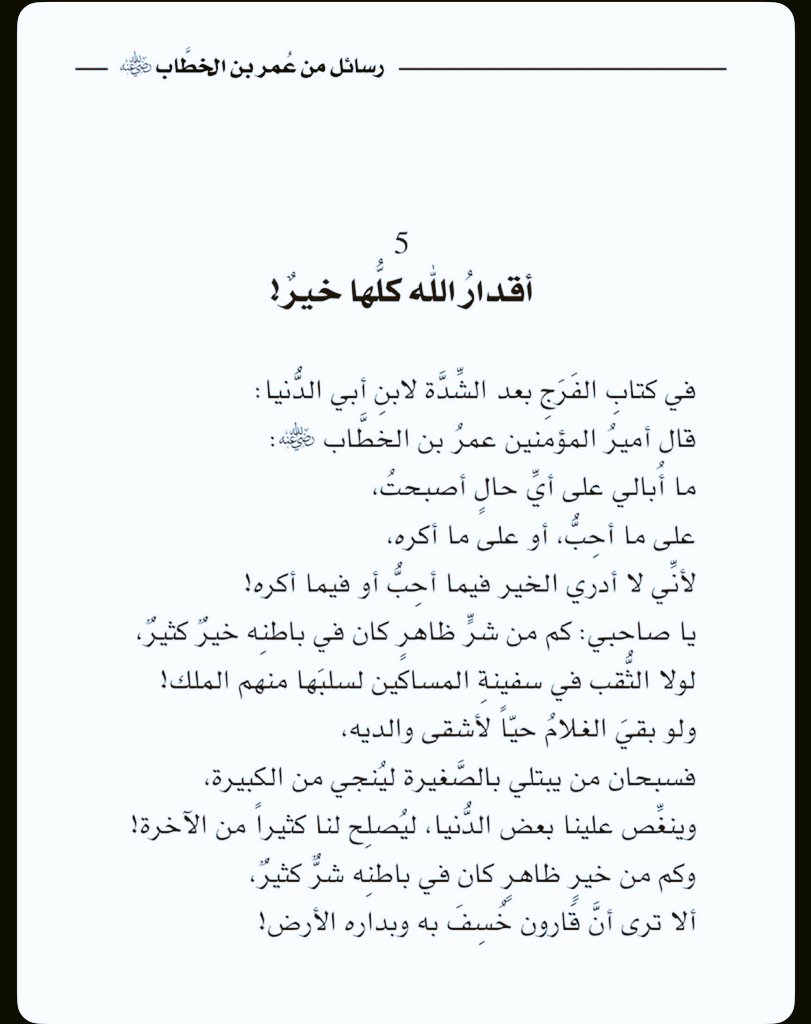 رسائل من عُمر بن الخطَّاب رضي الله عنه
5
أقدارُ الله كلُّها خيرٌ!
في كتابِ الفَرَجِ بعد الشِّدَّة لابنِ أبي الدُّنيا:
قال أميرُ المؤمنين عمرُ بن الخطَّاب رضي الله عنه:
ما أُبالي على أيِّ حالٍ أصبحتُ،
على ما أحِبُّ، أو على ما أكره،
لأنِّي لا أدري الخير فيما أحِبُّ أو فيما أكره!
يا صاحبي: كم من شرٍّ ظاهرٍ كان في باطنِه خيرٌ كثيرٌ،
لولا الثُّقب في سفينةِ المساكين لسلبَها منهم الملك!
ولو بقيَ الغلامُ حيّاً لأشقى والديه،
فسبحان من يبتلي بالصَّغيرة ليُنجي من الكبيرة،
وينغِّص علينا بعض الدُّنيا، ليُصلِح لنا كثيراً من الآخرة!
وكم من خيرٍ ظاهرٍ كان في باطنِه شرٌّ كثيرٌ،
ألا ترى أنَّ قارون خُسِفَ به وبداره الأرض!